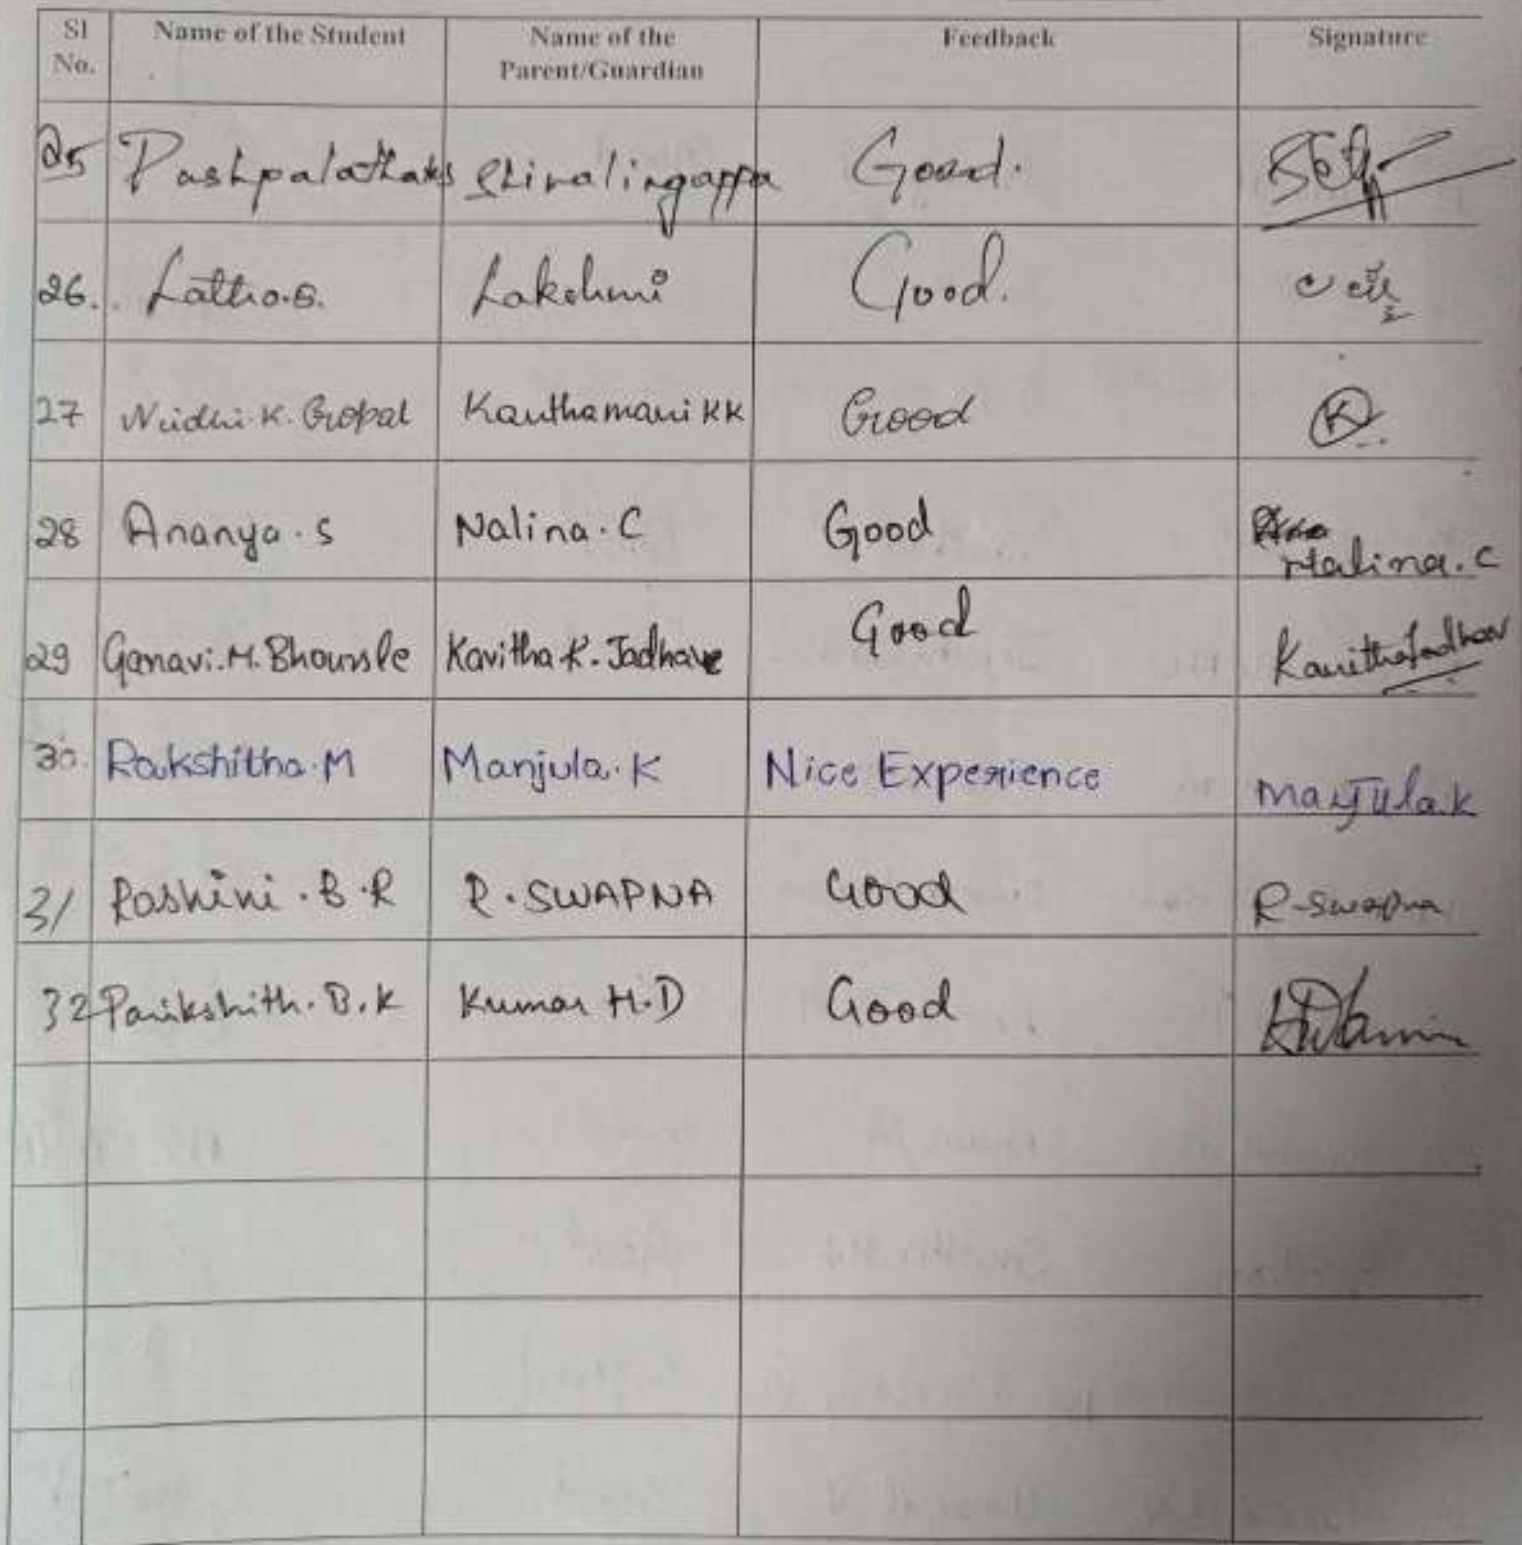 Sl No. Name of the Student Name of the Parent/Guardian Feedback Signature
25 Pushpalatha Shivalingappa Good.
26. Latha.G. Lakshmi Good.
27 Nidhi.K.Gopal Kanthamani KK Good K
28 Ananya.S Nalina.C Good Nalina.C
29 Ganavi.M.Bhounsle Kavitha.K.Jadhave Good Kavitha Jadhav
30. Rakshitha.M Manjula.K Nice Experience Manjula.K
31 Roshini.B.R R.SWAPNA Good R-Swapna
32 Parikshith.B.K Kumar H.D Good